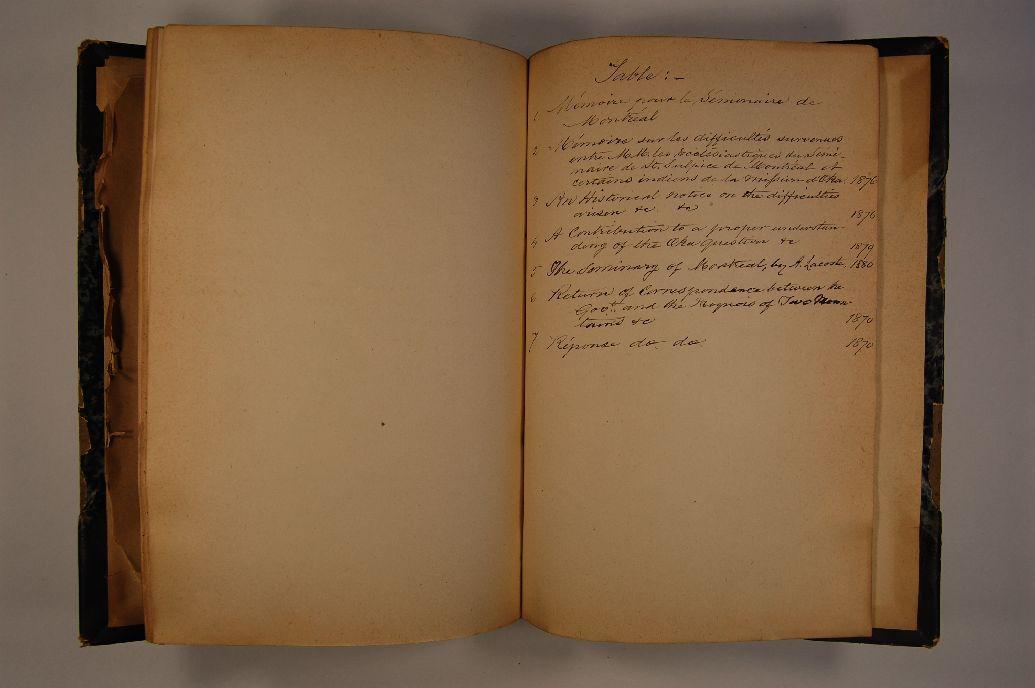 Table :-
1 Mémoire pour le Séminaire de
Montréal
2 Mémoire sur les difficultés survenues
entre M.M. les Ecclésiastiques du Sémi-
naire de St. Sulpice de Montréal et
certains indiens de la mission d'Oka. 1876
3 An Historical notice on the difficulties
arisen &c &c 1876
4 A Contribution to a proper understan-
ding of the Oka Question &c 1879
5 The Seminary of Montreal, by A. Lacoste, 1880
6 Return of Correspondence between the
Govt. and the Iroquois of Two Moun-
tains &c 1870
7 Réponse do. do. 1870